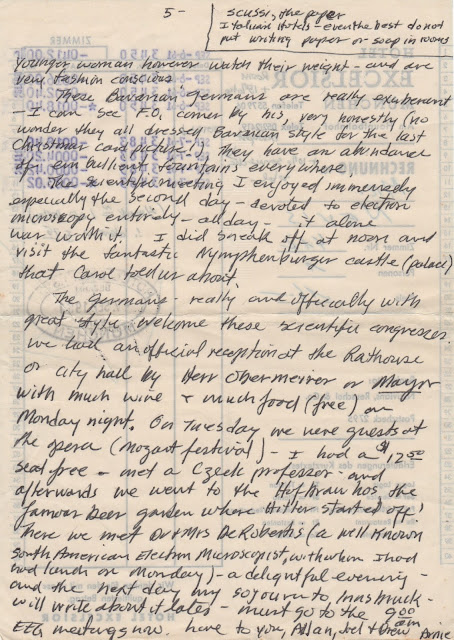 5-
scussi, the paper
Italian Hotels - even the best do not
put writing paper or soap in rooms
younger woman however watch their weight - and are
very fashion conscious
These Bavarian Germans are really exuberant
- I can see F.O. comes by his, very honestly (no
wonder they all dressed Bavarian style for the last
Christmas card picture). They have an abundance
of ebullient fountains everywhere
The scientific meeting I enjoyed immensely
especially the second day - devoted to electron
microscopy entirely - all day - it alone
was worth it. I did sneak off at noon and
visit the fantastic Nymphenburger castle (palace)
that Carol told us about.
The Germans - really and officially with
great style welcome these scientific congresses.
We had an official reception at the Rathouse
or city hall by Herr Obermeirer or Mayor
with much wine & much food (free) on
Monday night. On Tuesday we were guests at
the opera (Mozart festival) - I had a $12.50
seat free - met a Czech professor - and
afterwards we went to the Hofbrau hos, the
famous beer garden where Hitler started off!
There we met Dr & Mrs DeRobertis (a well known
South American Electron Microscopist, with whom I had
had lunch on Monday) - a delightful evening -
and the next day my sojourn to Innsbruck -
will write about it later - must go to the 9:00 am
ETG meetings now. Love to you, Allan, Joel & Drew Arnie
ZIMMER
HOTEL
EXCELSIOR
MÜNCHEN
Telefon
RECHNUNG
Personen
HOTEL EXCELSIOR